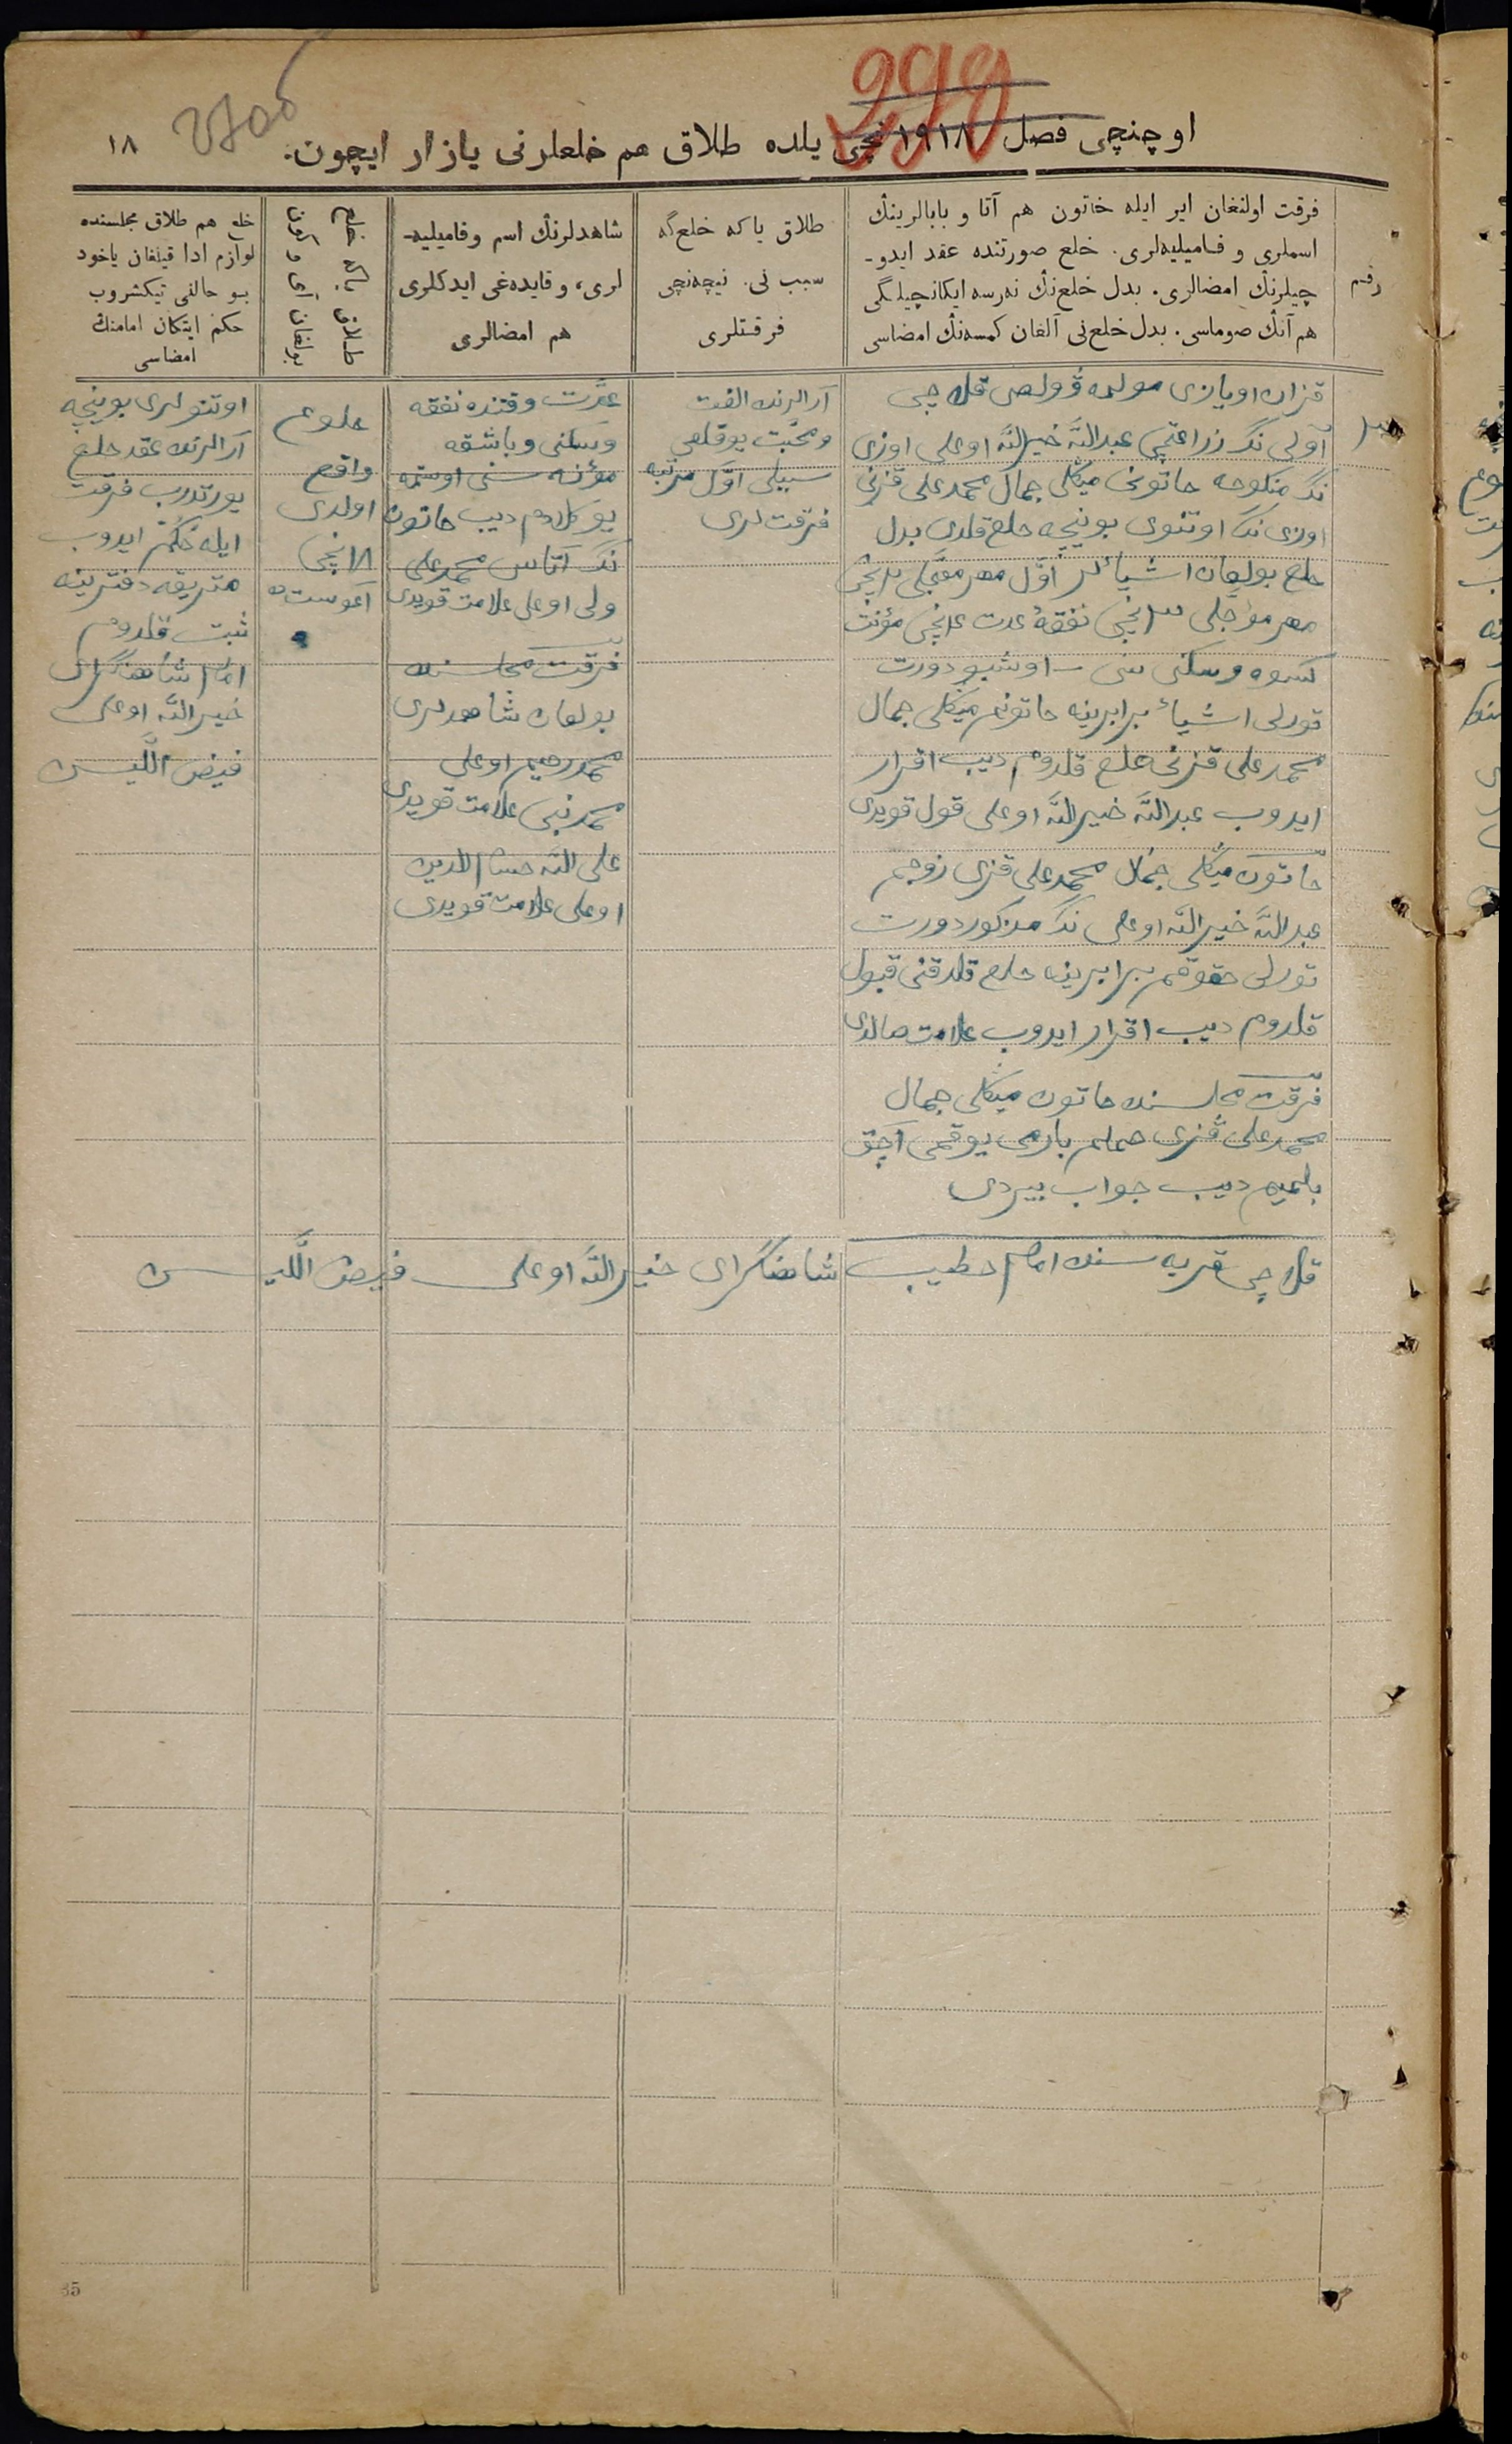 299
2700
١٨
اوچنچی فصل ١٩١٨ نچی يلده طلاق هم خلعلرنی يازار ايچون.
رقم
فرقت اولنغان اير ايله خاتون هم آتا و بابالرينڭ
اسملری و فاميليه‌لری. خلع صورتنده عقد ايدو-
چيلرنڭ امضالری. بدل خلع‌نڭ نه‌رسه ايكانچيلگی
هم آنڭ صوماسی. بدل خلع‌نی آلغان كمسه‌نڭ امضاسی
طلاق ياكه خلع‌گه
سبب نی. نيچه‌نچی
فرقتلری
شاهدلرنڭ اسم وفاميليه-
لری، وقايده‌غی ايدكلری
هم امضالری
طلاق ياكه خلع
بولغان آی و كون
خلع هم طلاق مجلسنده
لوازم ادا قيلغان ياخود
بو حالنی تيكشروب
حكم ايتكان امامنڭ
امضاسی
٣
قزان اويازی مولمه ڤولصی قله چی
آولی نڭ زراعتچی عبدالله خيرالله اوغلی اوزی
نڭ منكوحه خاتونی ميڭلی جمال محمدعلی قزنی
اوزی نڭ اوتنوی بوينچه خلع قلدی بدل
خلع بولغان اشيائلر اوّل مهر معجّلی ٢نچی
مهر مؤجّلی ٣نچی نفقهٔ عدت ٤نچی مؤنت
كسوه وسكنی سی اوشبو دورت
تورلی اشياء برابرينه خاتونم ميڭلی جمال
محمدعلی قزنی خلع قلدوم ديب اقرار
ايدوب عبدالله خيرالله اوغلی قول قويدی
خاتون ميڭلی جمال محمدعلی قزی زوجم
عبدالله خيرالله اوغلی نڭ مذكور دورت
تورلی حقوقم برابرينه خلع قلدقنی قبول
قلدوم ديب اقرار ايدوب علامت صالدی
فرقت مجلسنده خاتون ميڭلی جمال
محمدعلی قزی حملم بارمی يوقمی آچق
بلميم ديب جواب بيردی
آرالرنده الفت
ومحبّت يوقلغی
سببلی اوّل مرتبه
فرقت لری
عدّت وقتنده نفقه
وسكنی وباشقه
مؤنه سنی اوستمه
يوكلادم ديب خاتون
نڭ آتاسی محمدعلی
ولی اوغلی علامت قويدی
فرقت مجلسنده
بولغان شاهدلری
محمدرحيم اوغلی
محمدنبی علامت قويدی
علی الله حسام الدين
اوغلی علامت قويدی
خلوع
واقع
اولدی
١٧نچی
آغوست ده
اوتنولری بوينچه
آرالرنده عقد خلع
يورتدرب فرقت
ايله حكم ايدوب
متريقه دفترينه
ثبت قلدوم
امام شاهنگرای
خيرالله اوغلی
فيض اللين
قله چی قريه سنده امام خطيب شاهنگرای خيرالله اوغلی فيض اللين
35